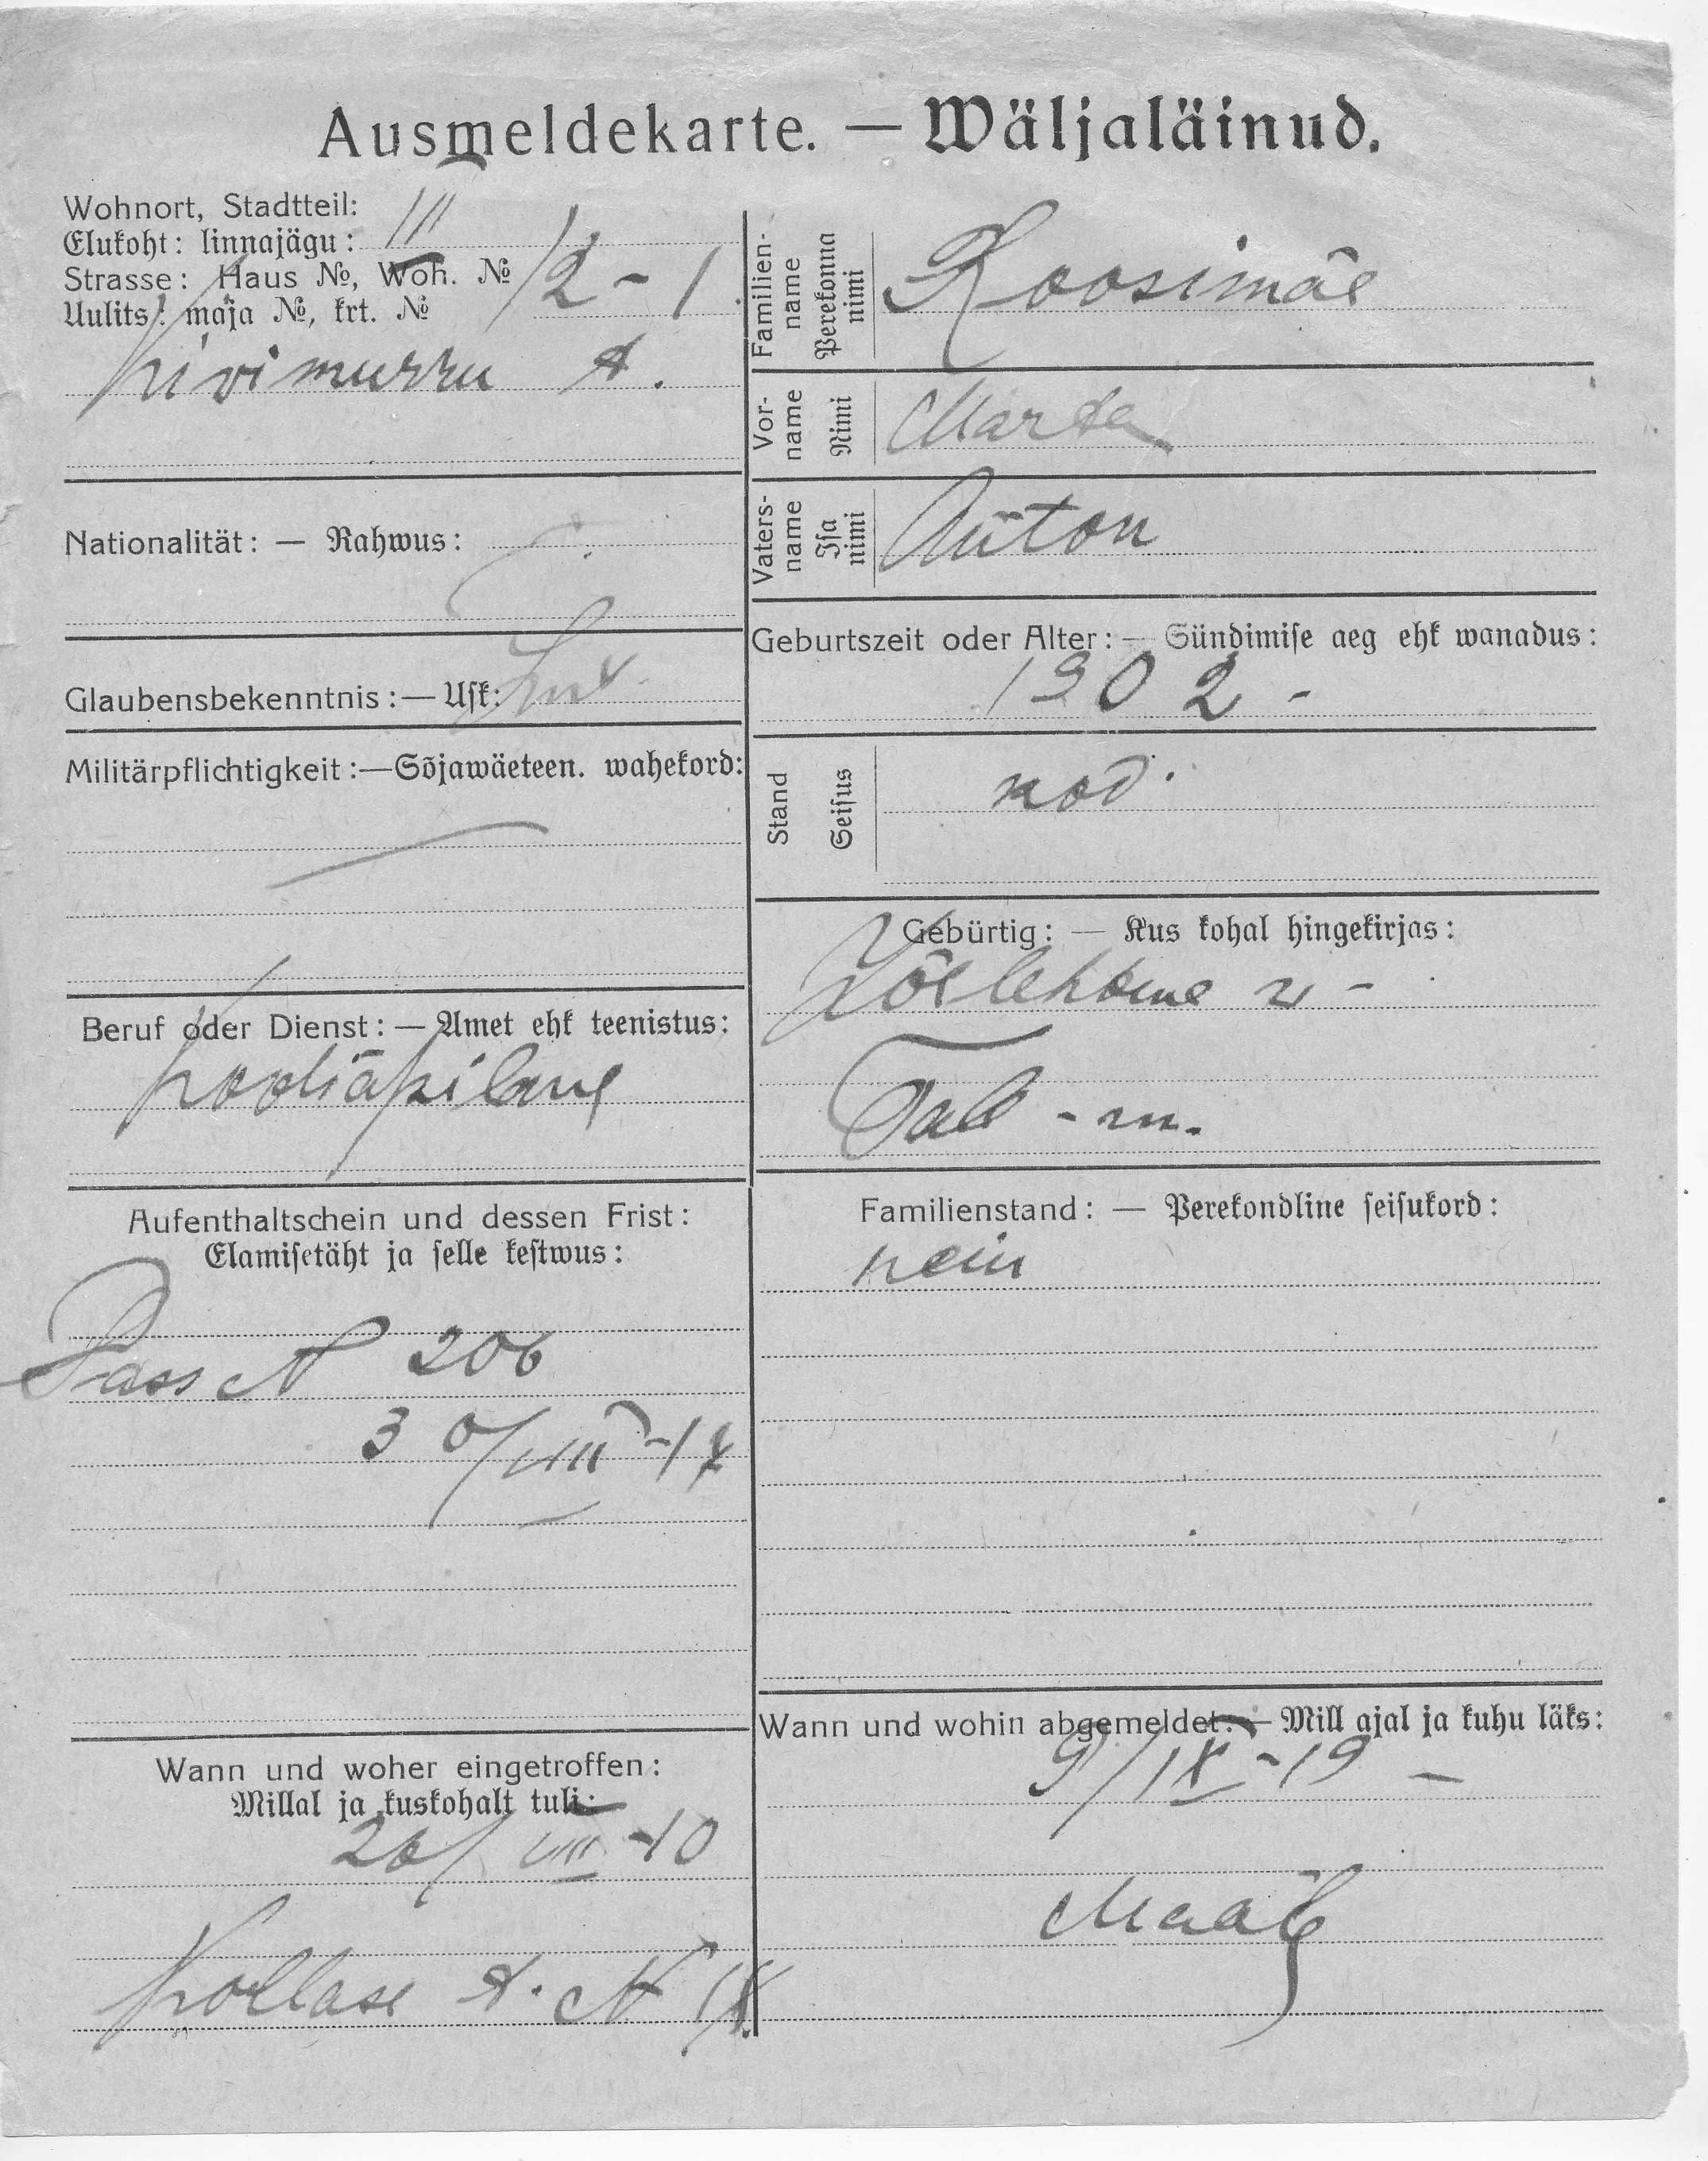 Ausmeldekarte. — Wäljaläinud.
Wohnort, Stadtteil:
Elukoht: linnajägu: III
Strasse: Haus №, Woh. №
Uulits: maja №, krt. № 12 - 1
Kivimurru t.
Familien-name Perekonna nimi Roosimäe
Vor-name Nimi Marta
Vaters-name Isa nimi Anton
Nationalität: — Rahwus:
Geburtszeit oder Alter: — Sündimise aeg ehk wanadus:
1902 -
Glaubensbekenntnis: — Usk: Lut.
Militärpflichtigkeit: — Sõjawäeteen. wahekord:
Stand Seisus kod.
Gebürtig: — Kus kohal hingekirjas:
Jõelehtme w -
Tall - m.
Beruf oder Dienst: — Amet ehk teenistus:
kooliõpilane
Aufenthaltschein und dessen Frist:
Elamisetäht ja selle kestwus:
Pass N 206
30/VIII -17
Familienstand: — Perekondline seisukord:
neiu
Wann und woher eingetroffen:
Millal ja kuskohalt tuli:
26/VIII -10
Kollase t. N
Wann und wohin abgemeldet: — Mill ajal ja kuhu läks:
9/IX -19 —
Maale